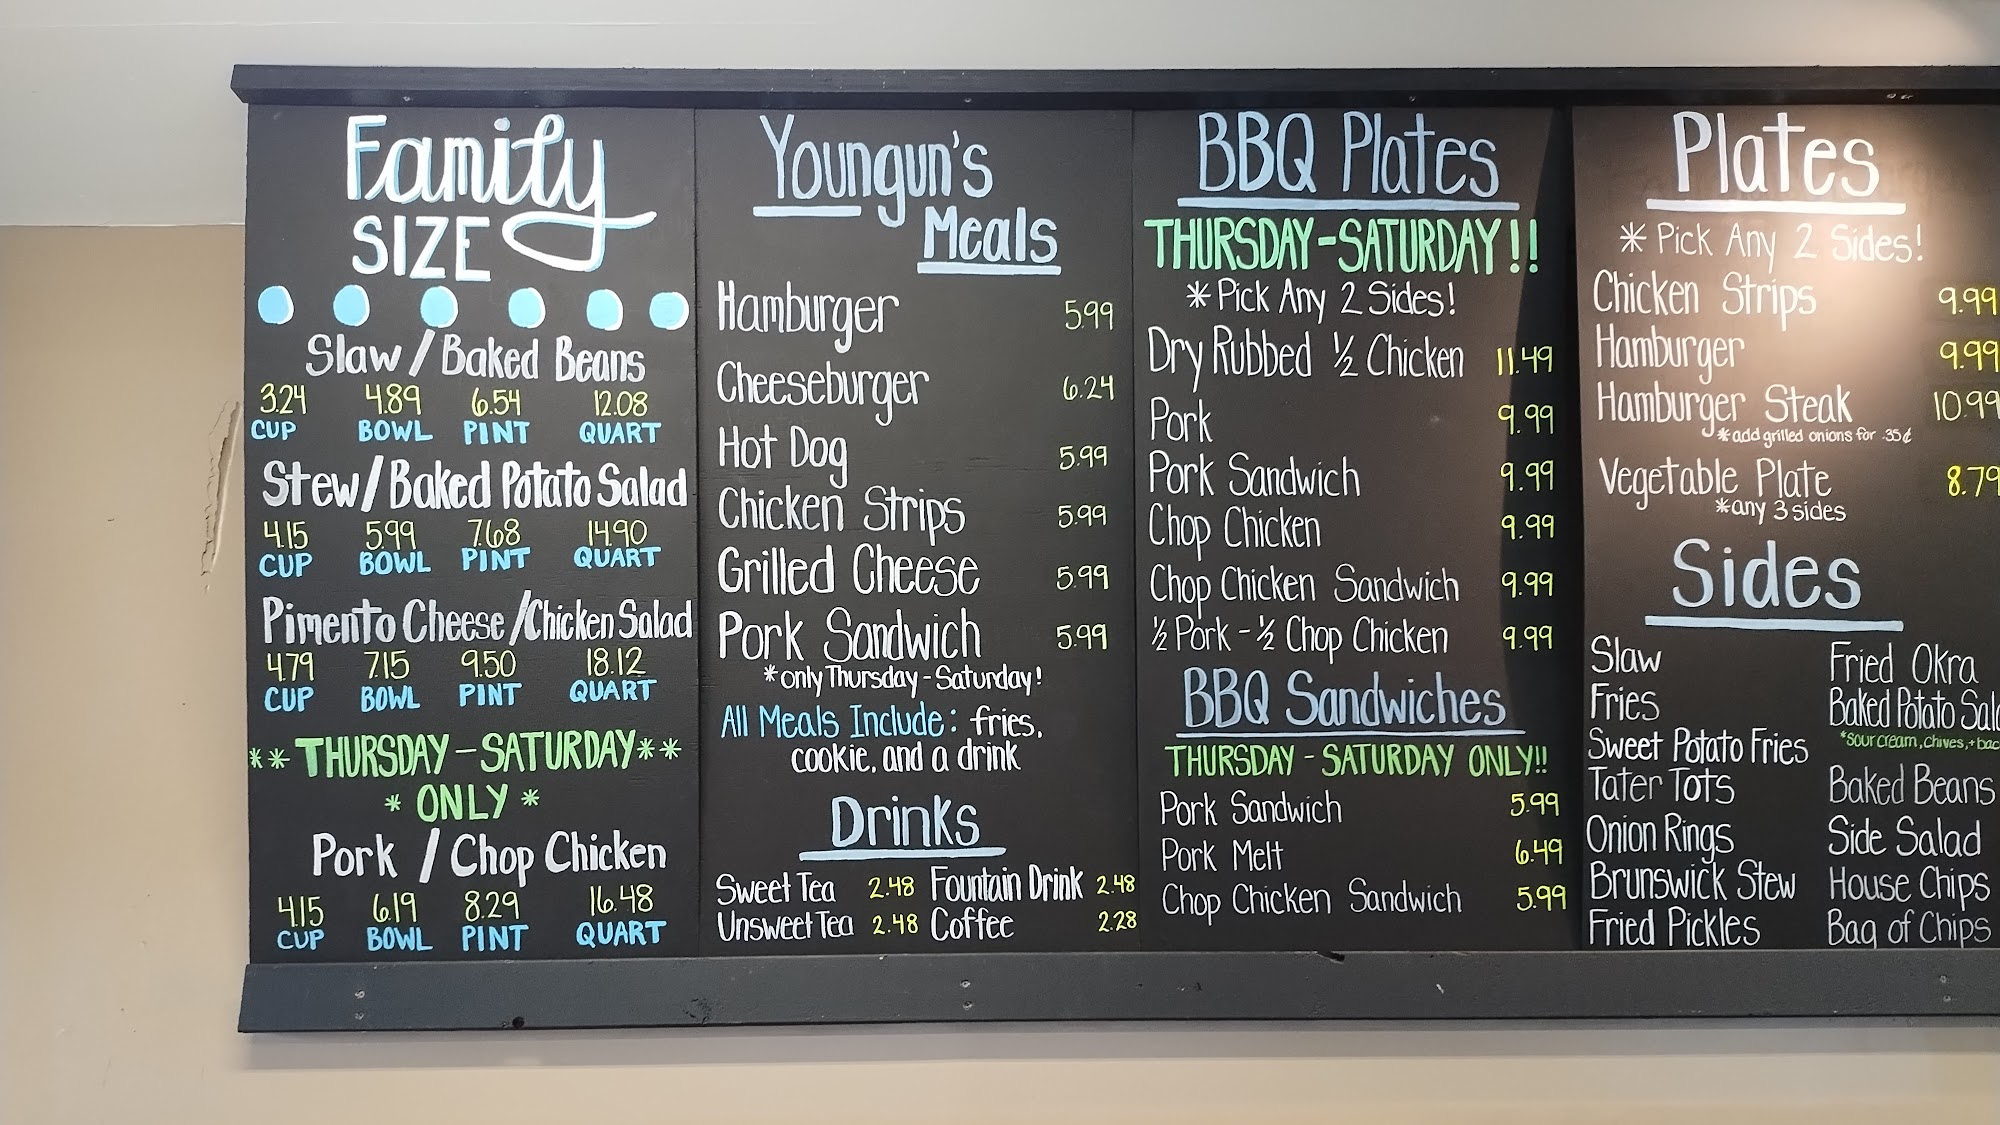 Family
SIZE
Slaw / Baked Beans
3.24 4.89 6.54 12.08
CUP BOWL PINT QUART
Stew/Baked Potato Salad
4.15 5.99 7.68 14.90
CUP BOWL PINT QUART
Pimento Cheese /Chicken Salad
4.79 7.15 9.50 18.12
CUP BOWL PINT QUART
** THURSDAY - SATURDAY**
* ONLY *
Pork / Chop Chicken
4.15 6.19 8.29 16.48
CUP BOWL PINT QUART
Youngun's
Meals
Hamburger 5.99
Cheeseburger 6.24
Hot Dog 5.99
Chicken Strips 5.99
Grilled Cheese 5.99
Pork Sandwich 5.99
*only Thursday - Saturday!
All Meals Include: fries,
cookie, and a drink
Drinks
Sweet Tea 2.48 Fountain Drink 2.48
Unsweet Tea 2.48 Coffee 2.28
BBQ Plates
THURSDAY-SATURDAY!!
* Pick Any 2 Sides!
Dry Rubbed ½ Chicken 11.49
Pork 9.99
Pork Sandwich 9.99
Chop Chicken 9.99
Chop Chicken Sandwich 9.99
½ Pork - ½ Chop Chicken 9.99
BBQ Sandwiches
THURSDAY - SATURDAY ONLY!!
Pork Sandwich 5.99
Pork Melt 6.49
Chop Chicken Sandwich 5.99
Plates
* Pick Any 2 Sides!
Chicken Strips 9.99
Hamburger 9.99
Hamburger Steak 10.99
*add grilled onions for .35¢
Vegetable Plate 8.79
*any 3 sides
Sides
Slaw
Fries
Sweet Potato Fries
Tater Tots
Onion Rings
Brunswick Stew
Fried Pickles
Fried Okra
Baked Potato
*sour cream, chives, +
Baked Beans
Side Salad
House Chips
Bag of Chips